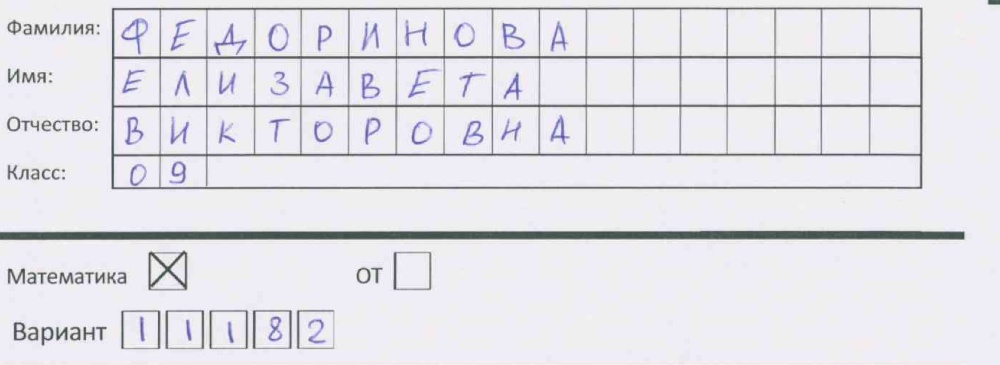 Фамилия: ФЕДОРИНОВА
Имя: ЕЛИЗАВЕТА
Отчество: ВИКТОРОВНА
Класс: 09
Математика ☒ ОТ ☐
Вариант 11182